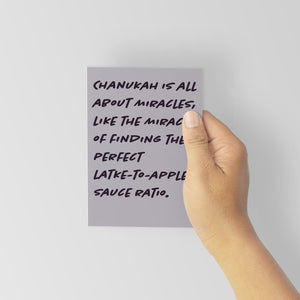 CHANUKAH IS ALL
ABOUT MIRACLES,
LIKE THE MIRAC
OF FINDING THE
PERFECT
LATKE-TO-APPLE
SAUCE RATIO.